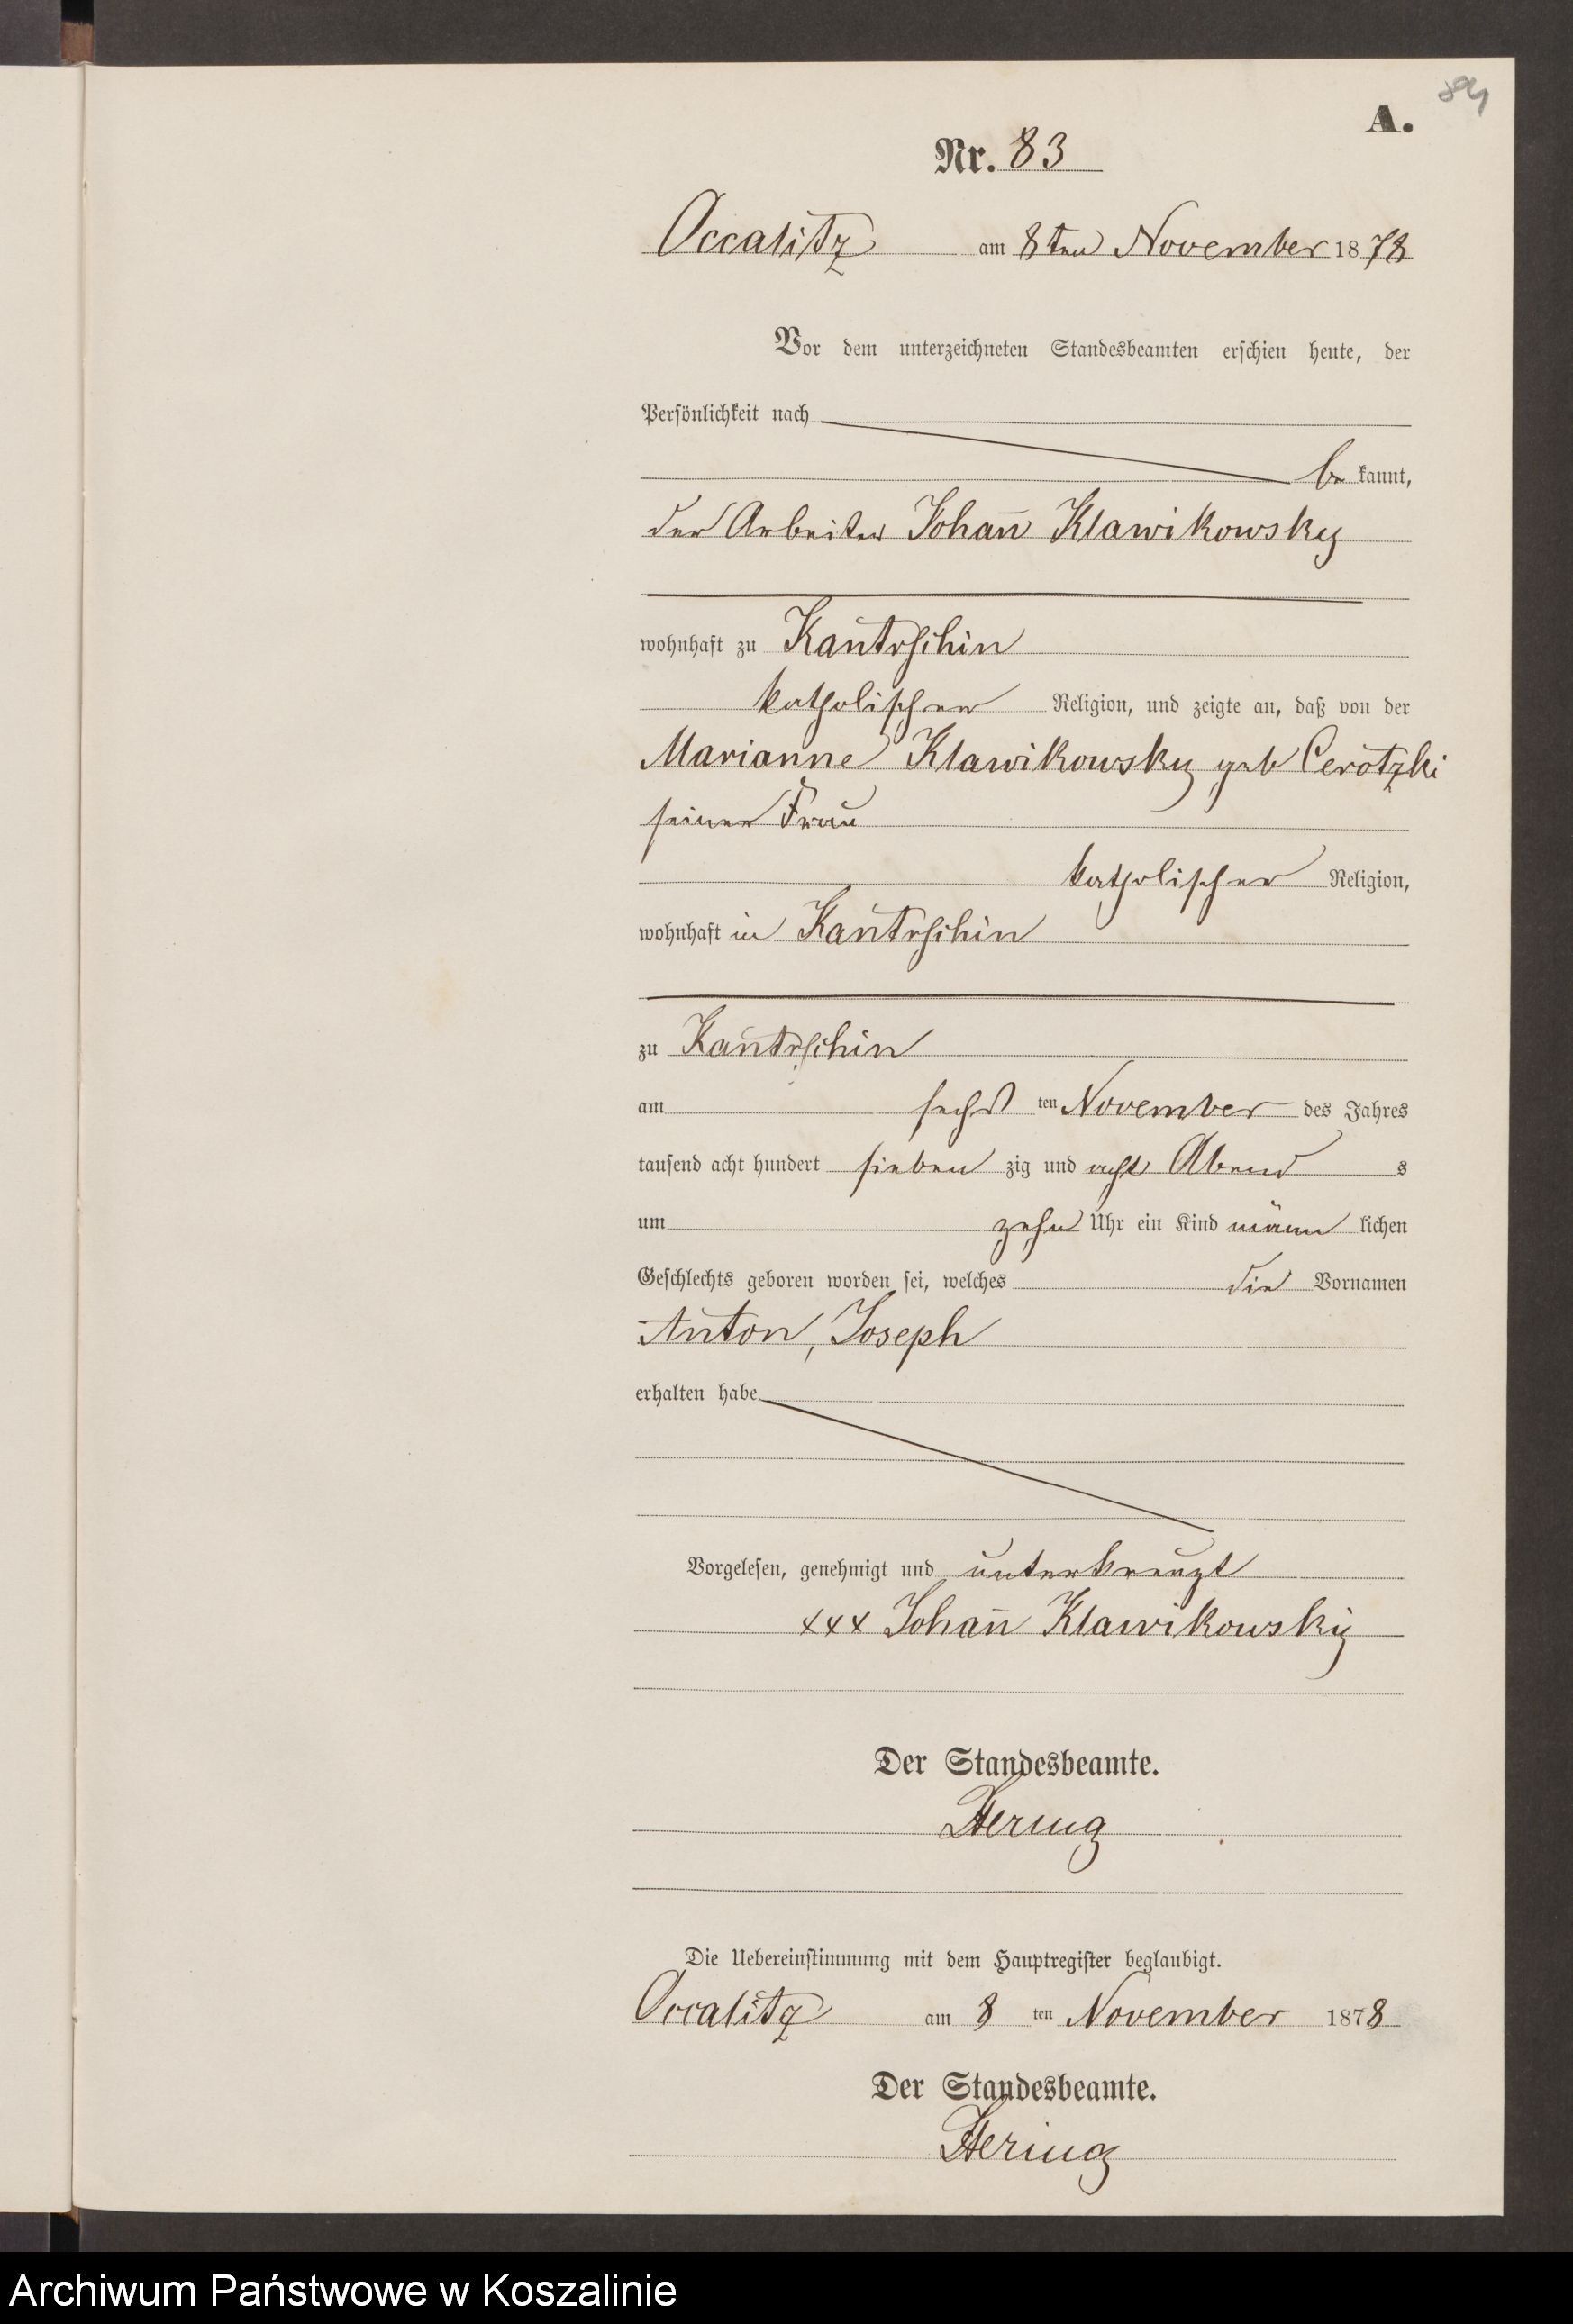 84
A.
Nr. 83
Occalitz am 8ten November 1878
Vor dem unterzeichneten Standesbeamten erschien heute, der
Persönlichkeit nach
be kannt,
der Arbeiter Johan̅ Klawikowsky
wohnhaft zu Kantrschin
katholischer Religion, und zeigte an, daß von der
Marianne Klawikowsky geb Cerotzki
seiner Frau
katholischer Religion,
wohnhaft in Kantrschin
zu Kantrschin
am sechs ten November des Jahres
tausend acht hundert sieben zig und acht Abend s
um zehn Uhr ein Kind männ lichen
Geschlechts geboren worden sei, welches die Vornamen
Anton, Joseph
erhalten habe
Vorgelesen, genehmigt und unterkreuzt
xxx Johan̅ Klawikowsky
Der Standesbeamte.
Hering
Die Uebereinstimmung mit dem Hauptregister beglaubigt.
Occalitz am 8 ten November 1878
Der Standesbeamte.
Hering
Archiwum Państwowe w Koszalinie